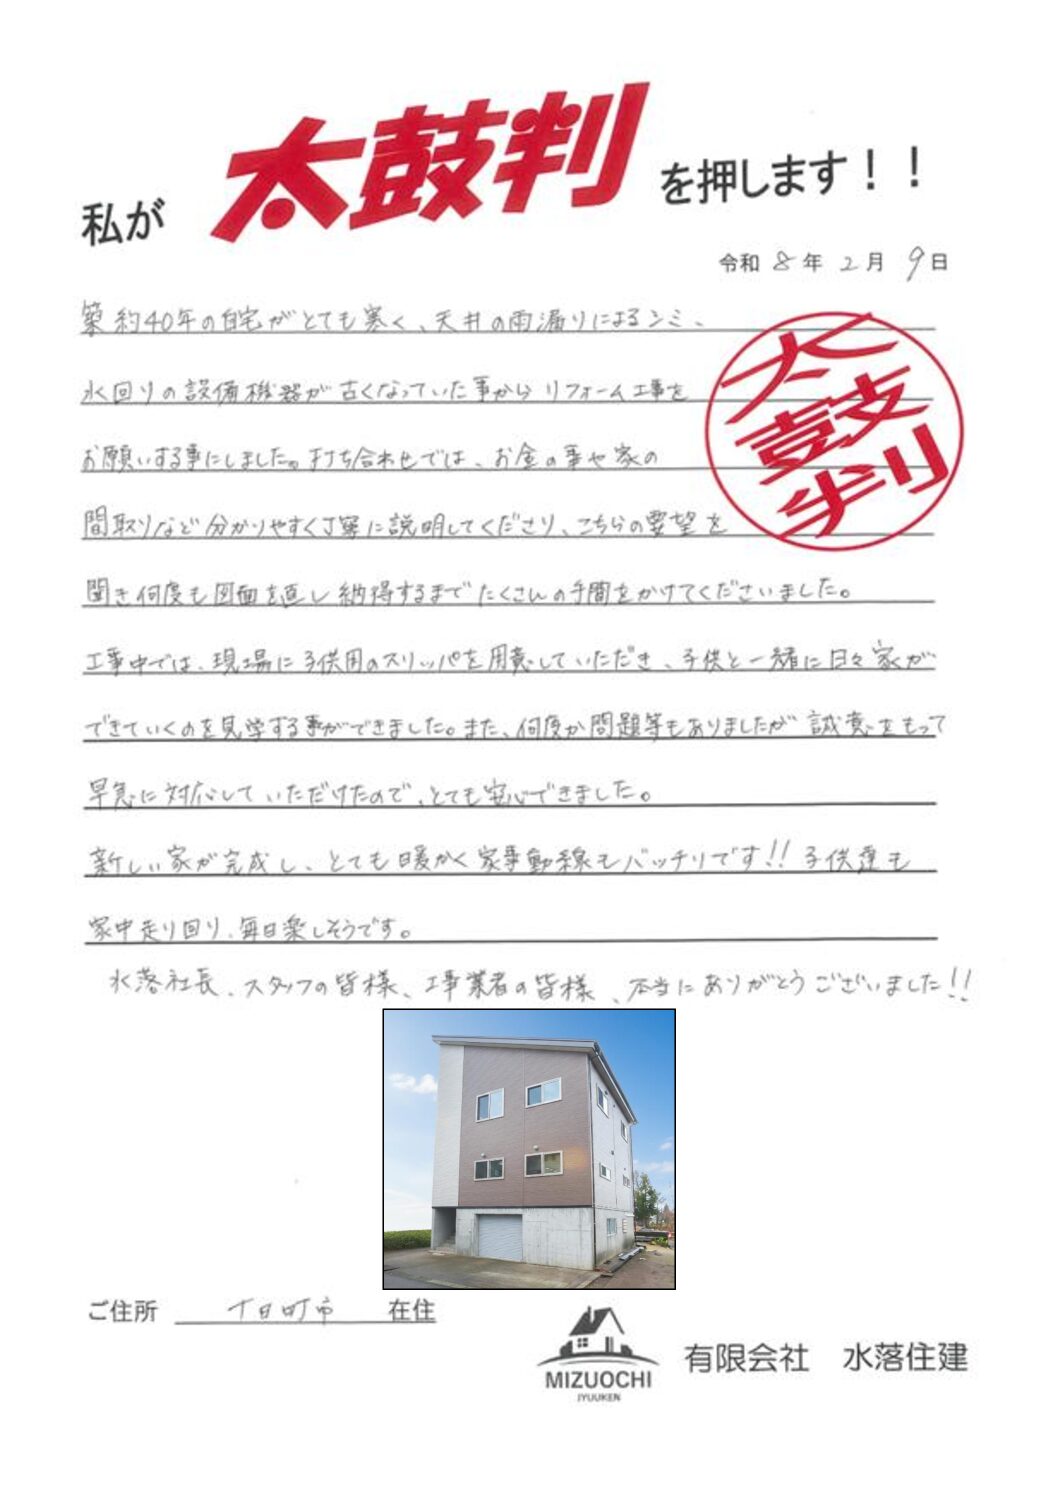 私が 太鼓判 を押します！！
令和 8 年 2 月 9 日
築約40年の自宅がとても寒く、天井の雨漏りによるシミ、
水回りの設備機器が古くなっていた事からリフォーム工事を
お願いする事にしました。打ち合わせでは、お金の事や家の
間取りなど分かりやすく丁寧に説明してくださり、こちらの要望を
聞き何度も図面を直し納得するまでたくさんの手間をかけてくださいました。
工事中では、現場に子供用のスリッパを用意していただき、子供と一緒に日々家が
できていくのを見学する事ができました。また、何度か問題等もありましたが誠意をもって
早急に対応していただけたので、とても安心できました。
新しい家が完成し、とても暖かく家事動線もバッチリです!! 子供達も
家中走り回り、毎日楽しそうです。
水落社長、スタッフの皆様、工事業者の皆様、本当にありがとうございました!!
太鼓判
ご住所 十日町市 在住
MIZUOCHI
JYUUKEN
有限会社 水落住建